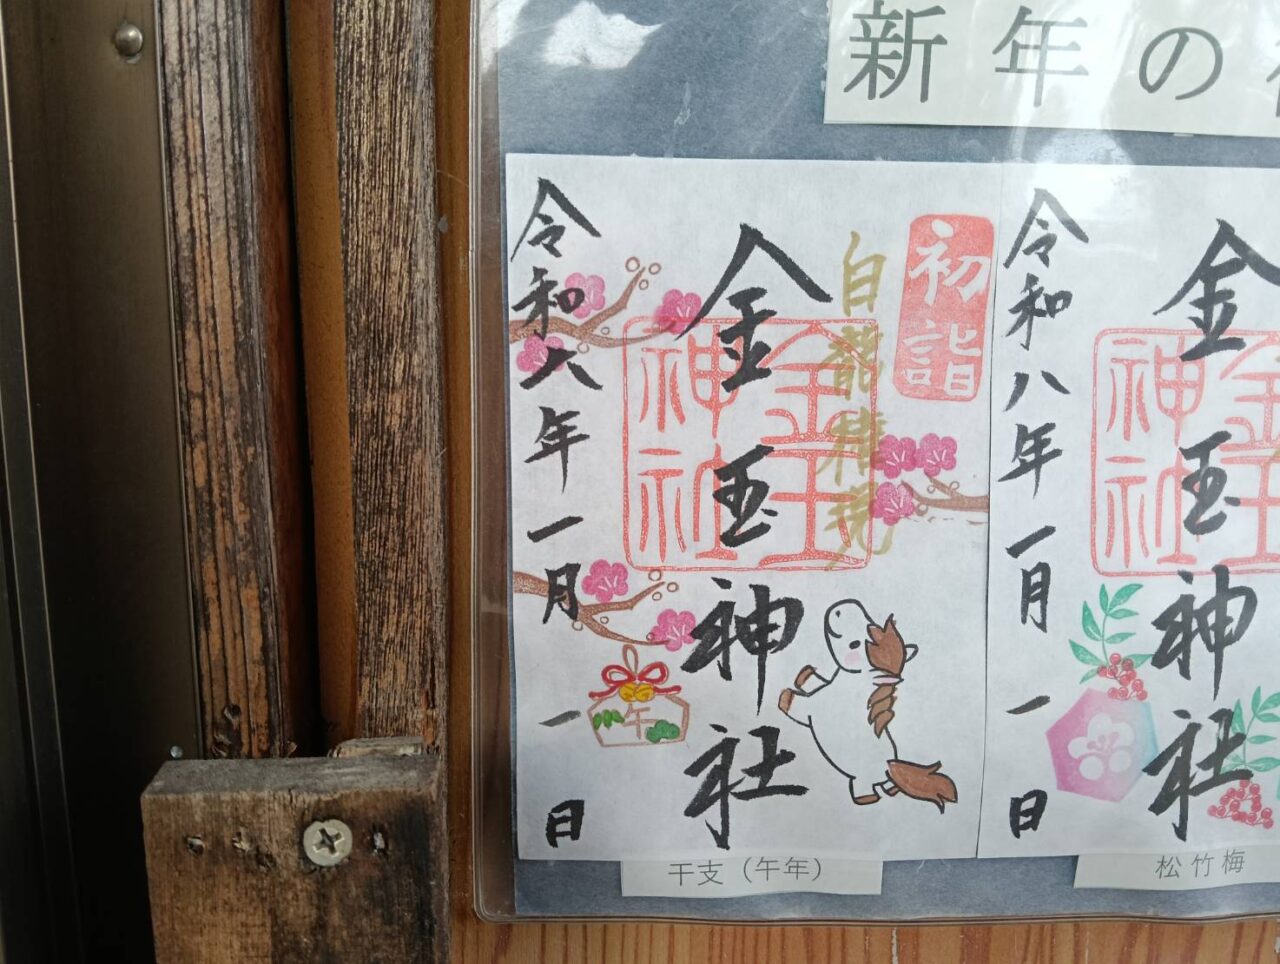 新年の
初詣
白龍権現
金玉神社
金玉神社
令和六年一月一日
午
干支（午年）
金玉神社
令和八年一月一日
松竹梅